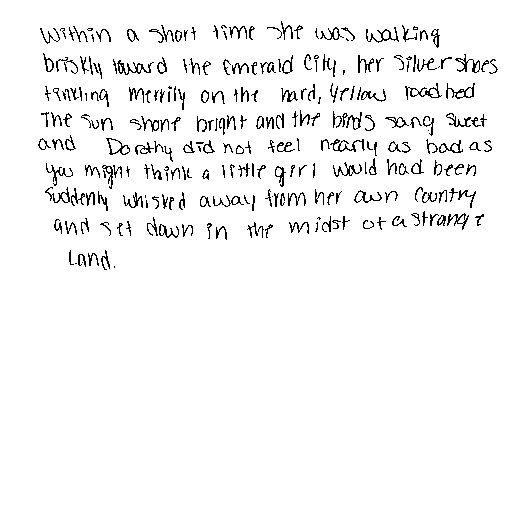 Within a short time she was walking
briskly toward the Emerald City, her Silver shoes
tinkling merrily on the hard, yellow roadbed
The sun shone bright and the birds sang sweet
and Dorothy did not feel nearly as bad as
you might think a little girl would had been
suddenly whisked away from her own country
and set down in the midst of a strange
land.